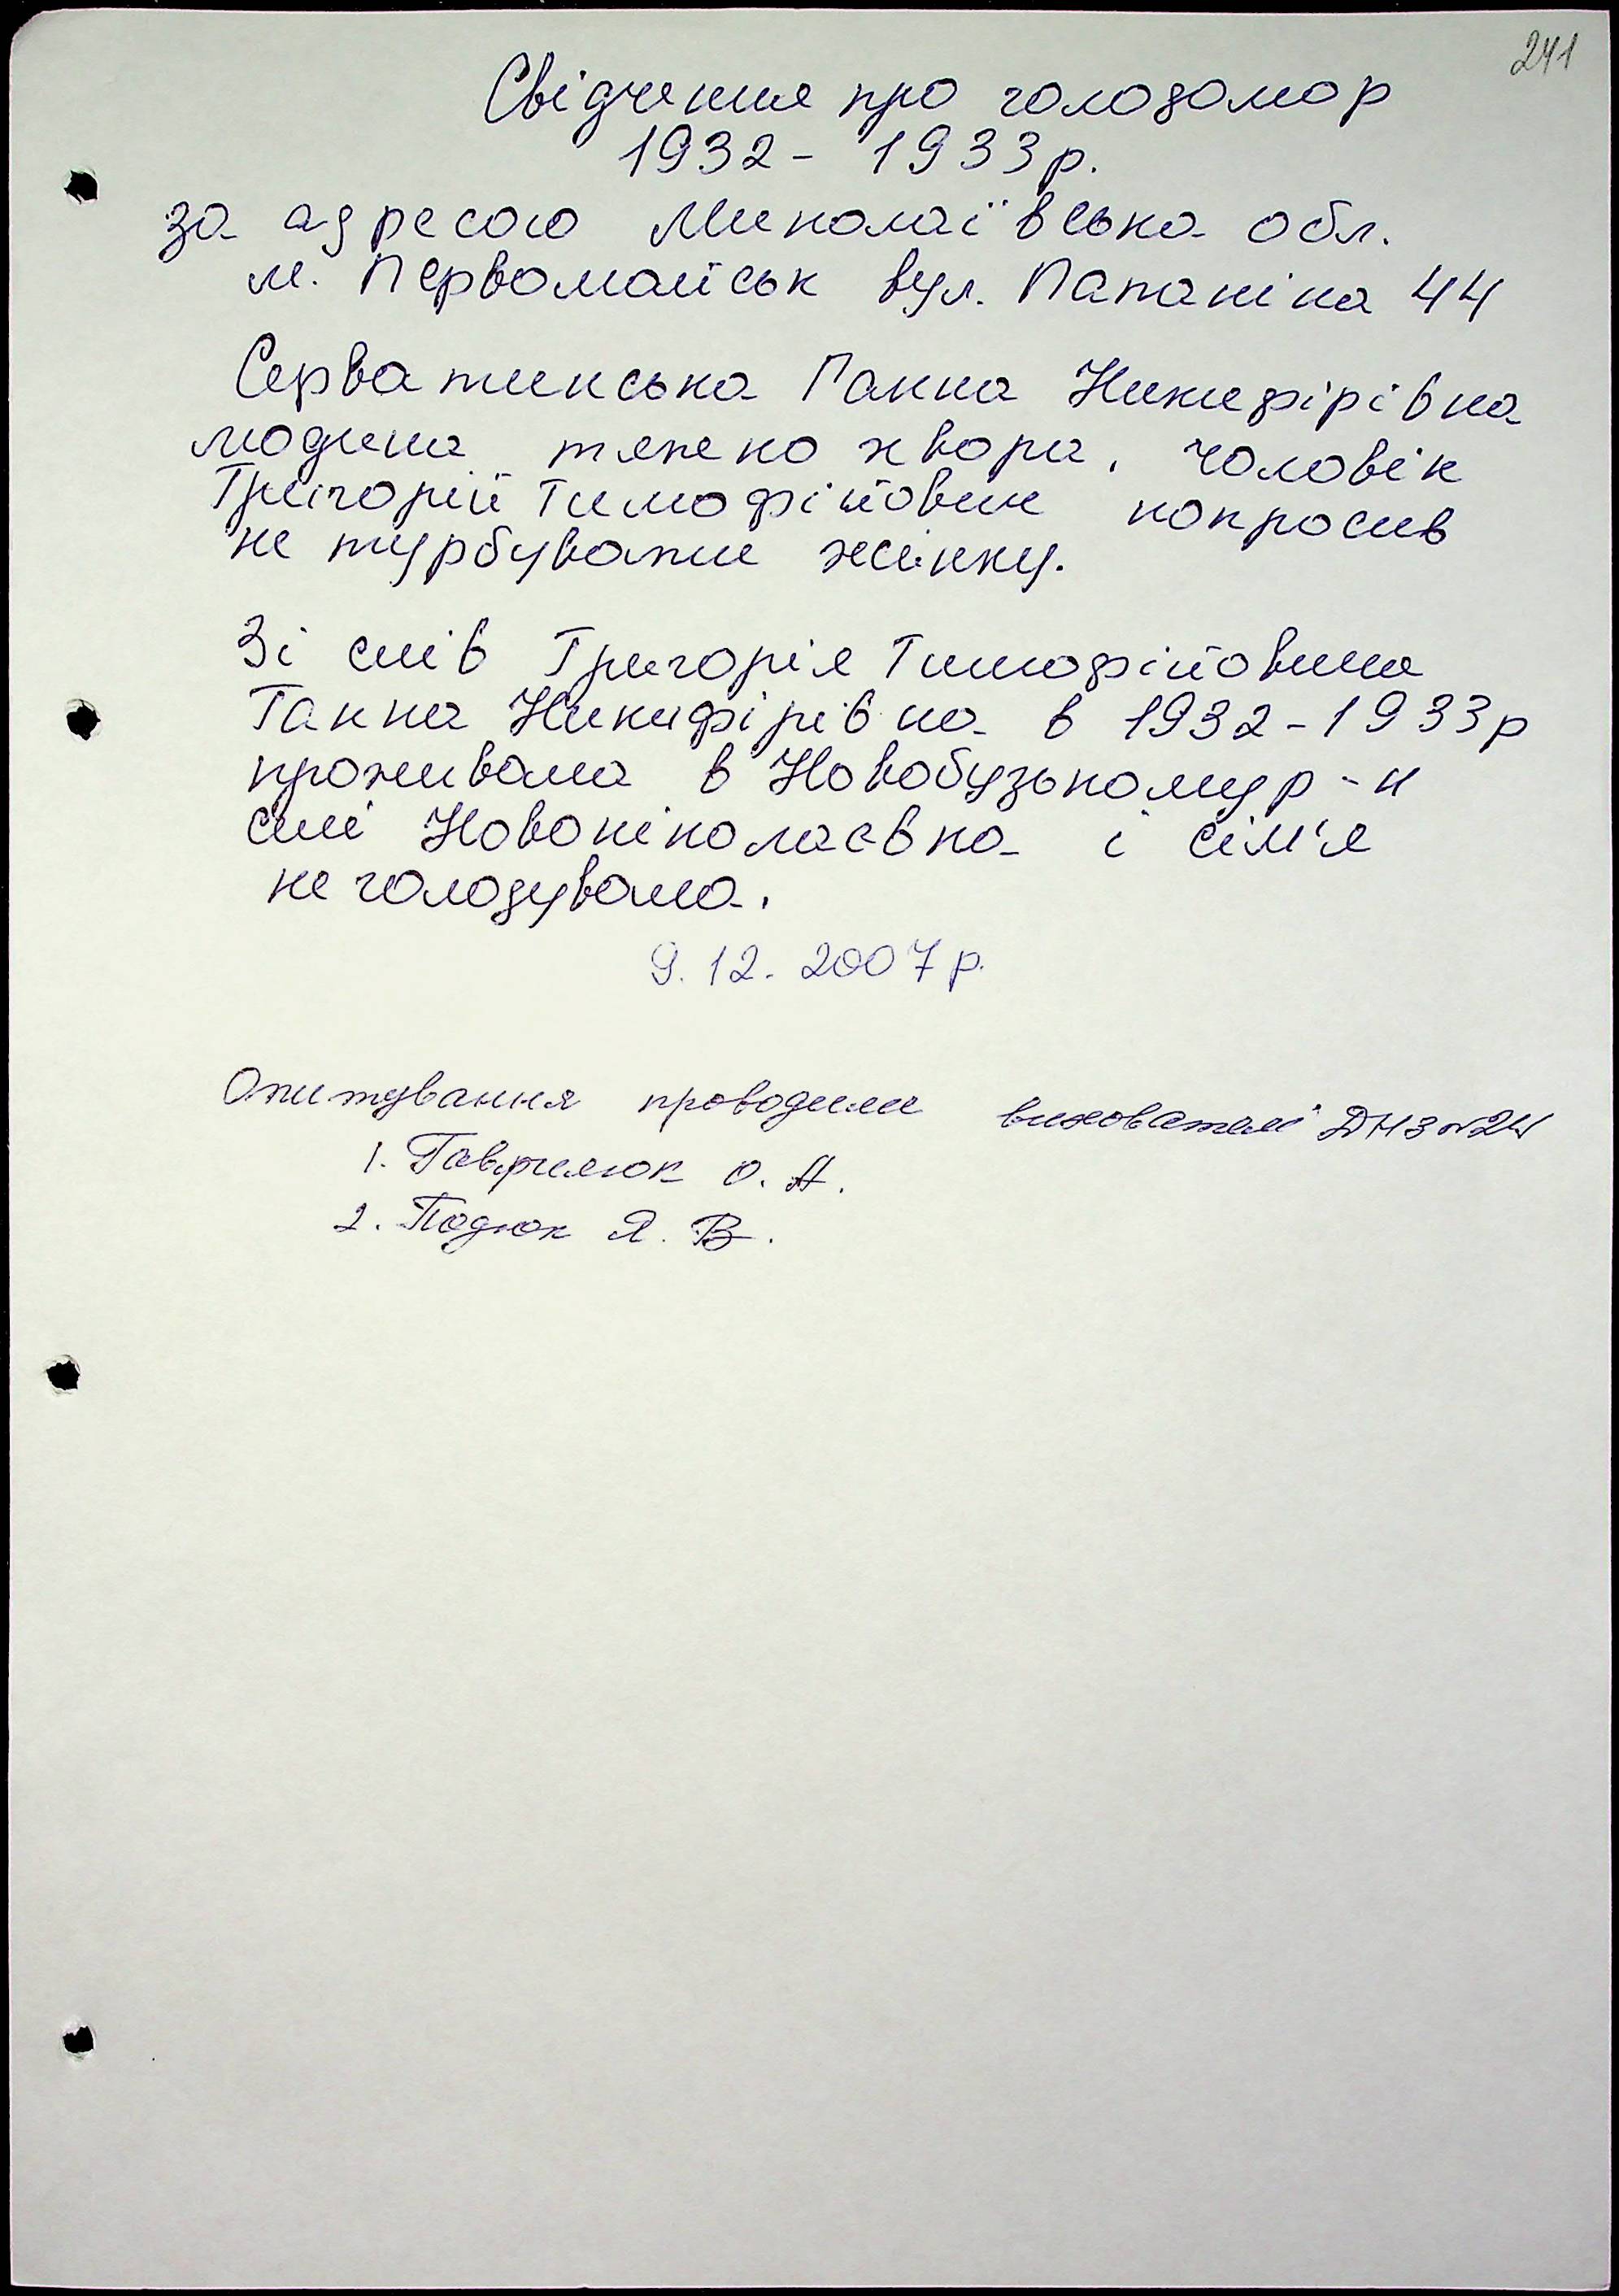 241
Свідчення про голодомор
1932 - 1933 р.
за адресою Миколаївська обл.
м. Первомайськ вул. Папаніна 44
Серватинська Ганна Никифірівна
людина тяжко хвора, чоловік
Григорій Тимофійович попросив
не турбувати жінку.
Зі слів Григорія Тимофійовича
Ганна Никифірівна в 1932-1933р
проживала в Новобузькому р-н
селі Новоніколаєвка і сім'я
не голодувала.
9. 12. 2007 р.
Опитування проводили вихователі ДНЗ №24
1. Гаврилюк О. А.
2. Подюк Я. В.